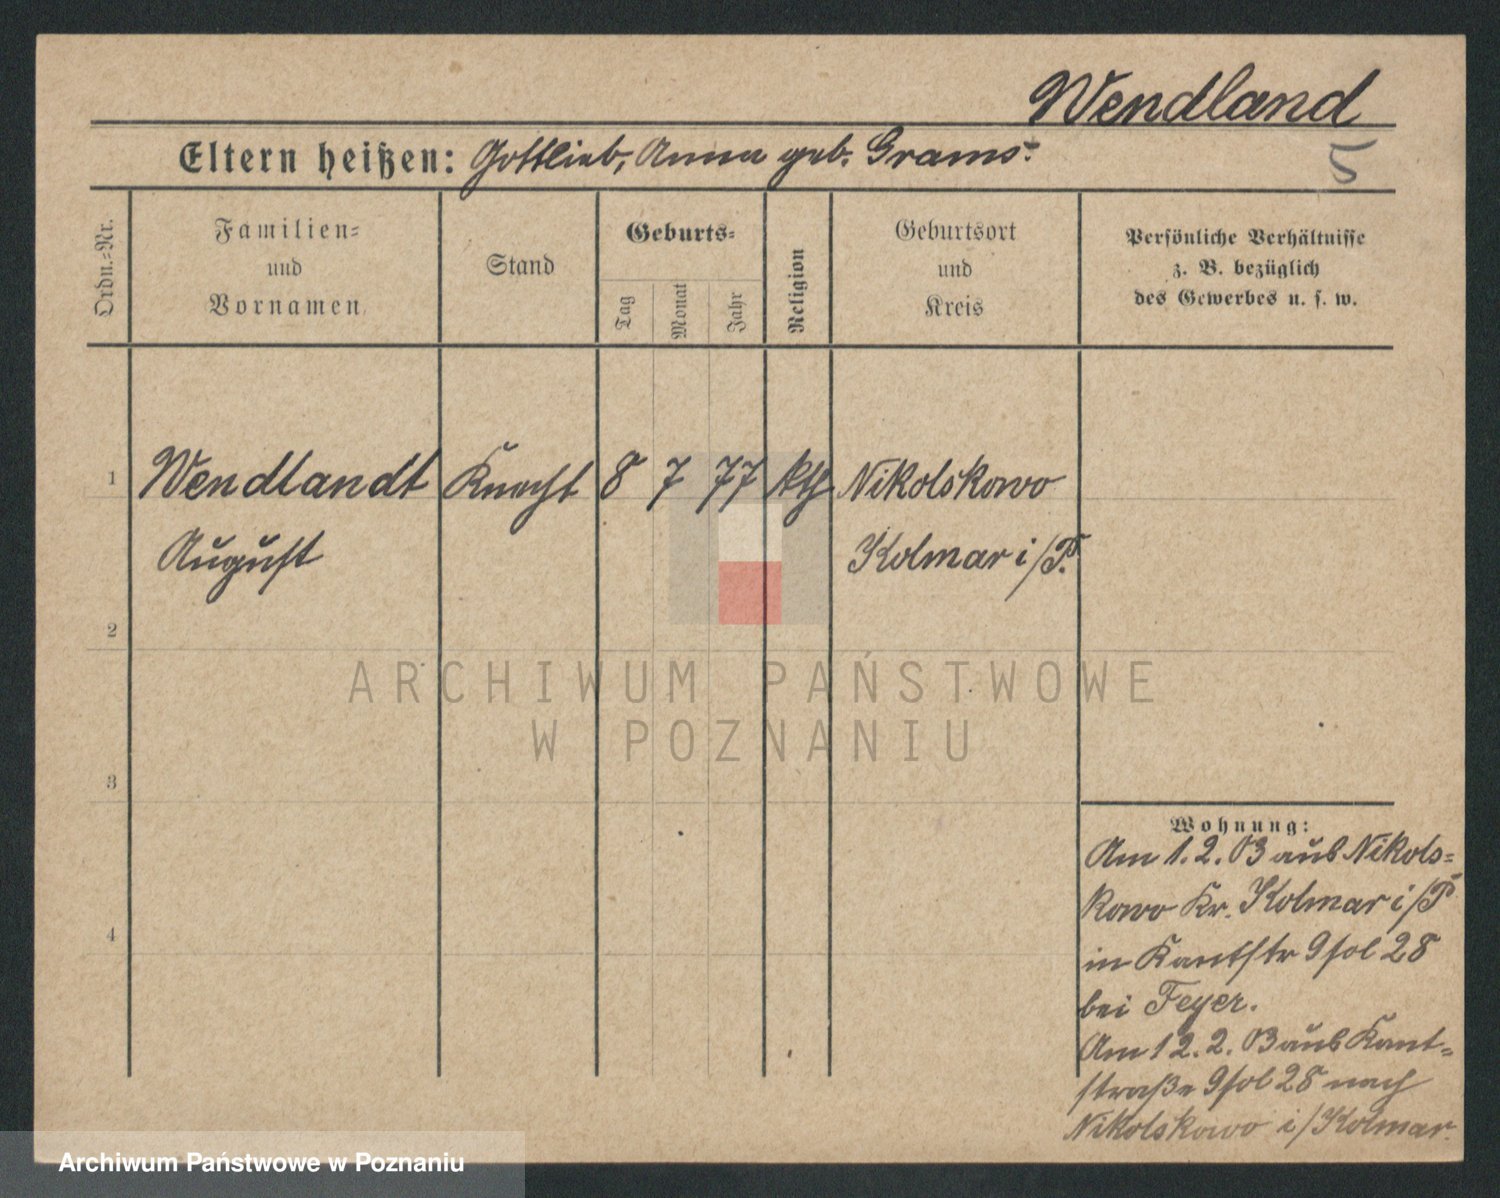 Wendland
Eltern heißen: Gottlieb, Anna geb. Grams.
5
Ordn.=Nr.
Familien=
und
Vornamen
Stand
Geburts=
Tag
Monat
Jahr
Religion
Geburtsort
und
Kreis
Persönliche Verhältnisse
z. B. bezüglich
des Gewerbes u. s. w.
1
Wendlandt Knecht 8 7 77 kth Nikolskowo
August Kolmar i/P.
2
ARCHIWUM PAŃSTWOWE
W POZNANIU
3
Wohnung:
Am 1.2.03 aus Nikols=
kowo Kr. Kolmar i/P
in Kantstr 9 fol 28
bei Feyer.
4
Am 12.2.03 aus Kant=
straße 9 fol 28 nach
Nikolskowo i/Kolmar.
Archiwum Państwowe w Poznaniu